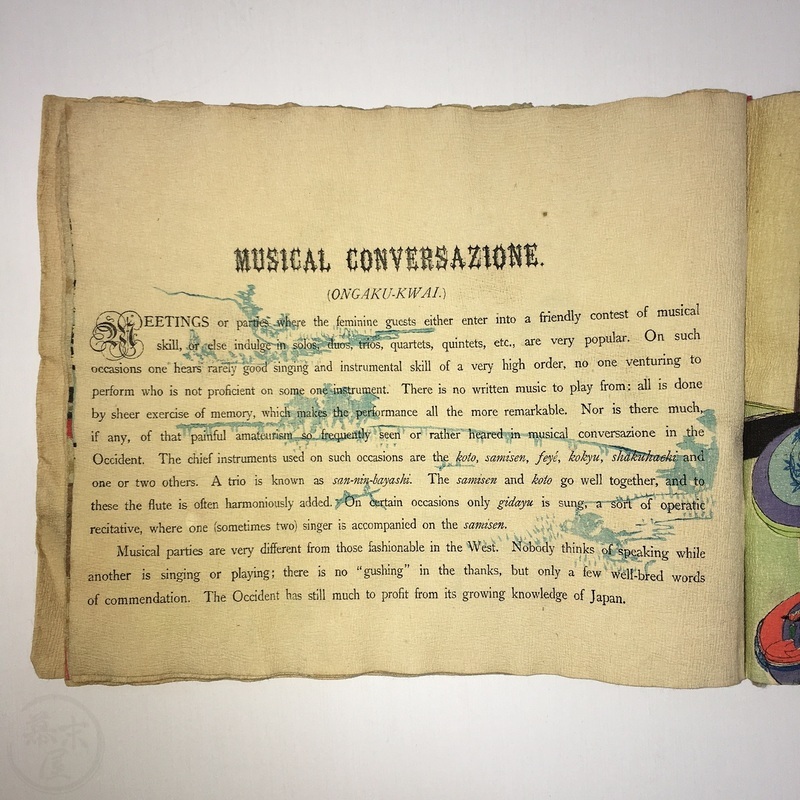 MUSICAL CONVERSAZIONE.
(ONGAKU-KWAI.)
MEETINGS or parties where the feminine guests either enter into a friendly contest of musical
skill, or else indulge in solos, duos, trios, quartets, quintets, etc., are very popular. On such
occasions one hears rarely good singing and instrumental skill of a very high order, no one venturing to
perform who is not proficient on some one instrument. There is no written music to play from: all is done
by sheer exercise of memory, which makes the performance all the more remarkable. Nor is there much,
if any, of that painful amateurism so frequently seen or rather heared in musical conversazione in the
Occident. The chief instruments used on such occasions are the koto, samisen, feyé, kokyu, shakuhachi and
one or two others. A trio is known as san-nin-bayashi. The samisen and koto go well together, and to
these the flute is often harmoniously added. On certain occasions only gidayu is sung, a sort of operatic
recitative, where one (sometimes two) singer is accompanied on the samisen.
Musical parties are very different from those fashionable in the West. Nobody thinks of speaking while
another is singing or playing; there is no "gushing" in the thanks, but only a few well-bred words
of commendation. The Occident has still much to profit from its growing knowledge of Japan.
幕末屋